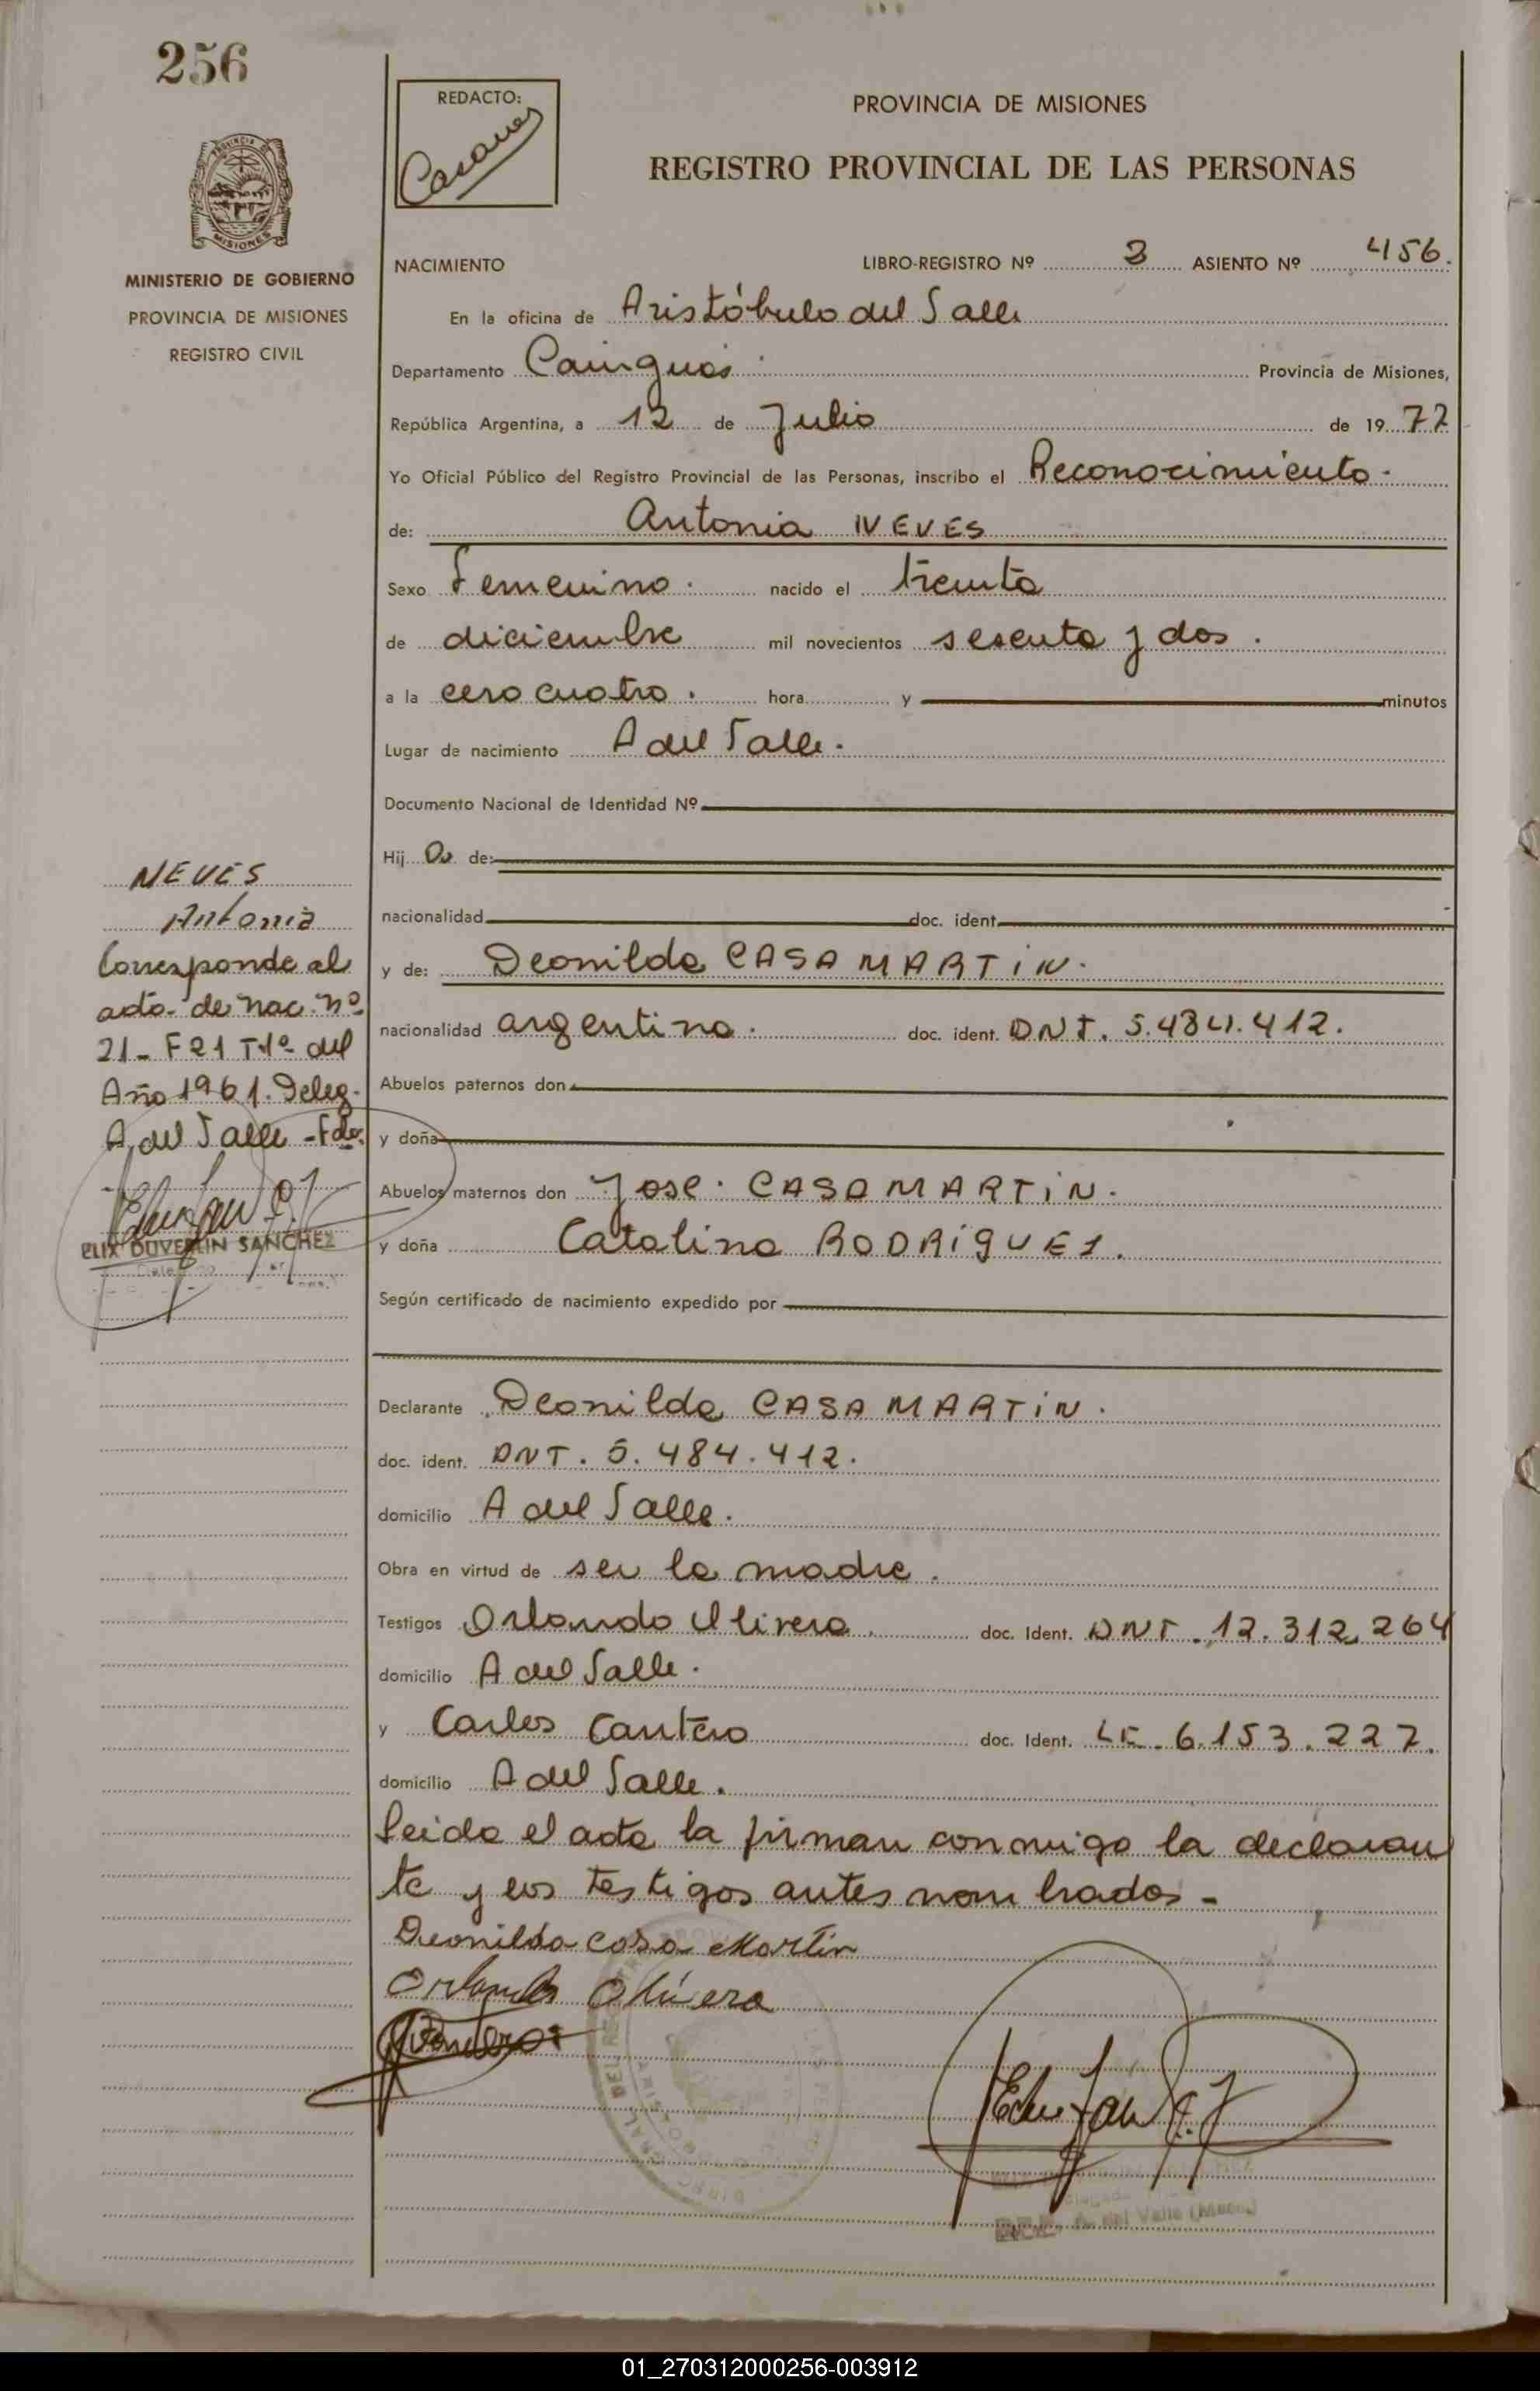 256
REDACTO:
PROVINCIA DE MISIONES
REGISTRO PROVINCIAL DE LAS PERSONAS
MISIONES
MINISTERIO DE GOBIERNO
PROVINCIA DE MISIONES
REGISTRO CIVIL
NACIMIENTO LIBRO-REGISTRO Nº 3 ASIENTO Nº 456.
En la oficina de Aristóbulo del Valle
Departamento Cainguás Provincia de Misiones,
República Argentina, a 12 de Julio de 1977
Yo Oficial Público del Registro Provincial de las Personas, inscribo el Reconocimiento
de: Antonia NEVES
Sexo Femenino. nacido el treinta
de diciembre mil novecientos sesenta y dos.
a la cero cuatro. hora y minutos
Lugar de nacimiento A del Valle.
Documento Nacional de Identidad Nº
Hij a de:
nacionalidad doc. ident.
y de: Deonilda CASAMARTIN.
nacionalidad argentina. doc. ident. DNI. 5.484.412.
Abuelos paternos don
y doña
Abuelos maternos don Jose. CASAMARTIN.
y doña Catalina RODRIGUEZ.
Según certificado de nacimiento expedido por
Declarante Deonilda CASAMARTIN.
doc. ident. DNI. 5.484.412.
domicilio A del Valle.
Obra en virtud de ser la madre.
Testigos Orlando Olivera. doc. Ident. DNI. 12.312.264
domicilio A del Valle.
y Carlos Cantero doc. Ident. LE. 6.153.227.
domicilio A del Valle.
Leida el acta la firman conmigo la declaran
te y los testigos antes nombrados-
Deonilda Casa Martin
Orlando Olivera
NEVES
Antonia
Corresponde al
acta de nac. nº
21- F21 Tº1º del
Año 1961. Deleg.
A. del Valle - Fdo.
ELIX DUVERLIN SANCHEZ
A. del Valle
01_270312000256-003912